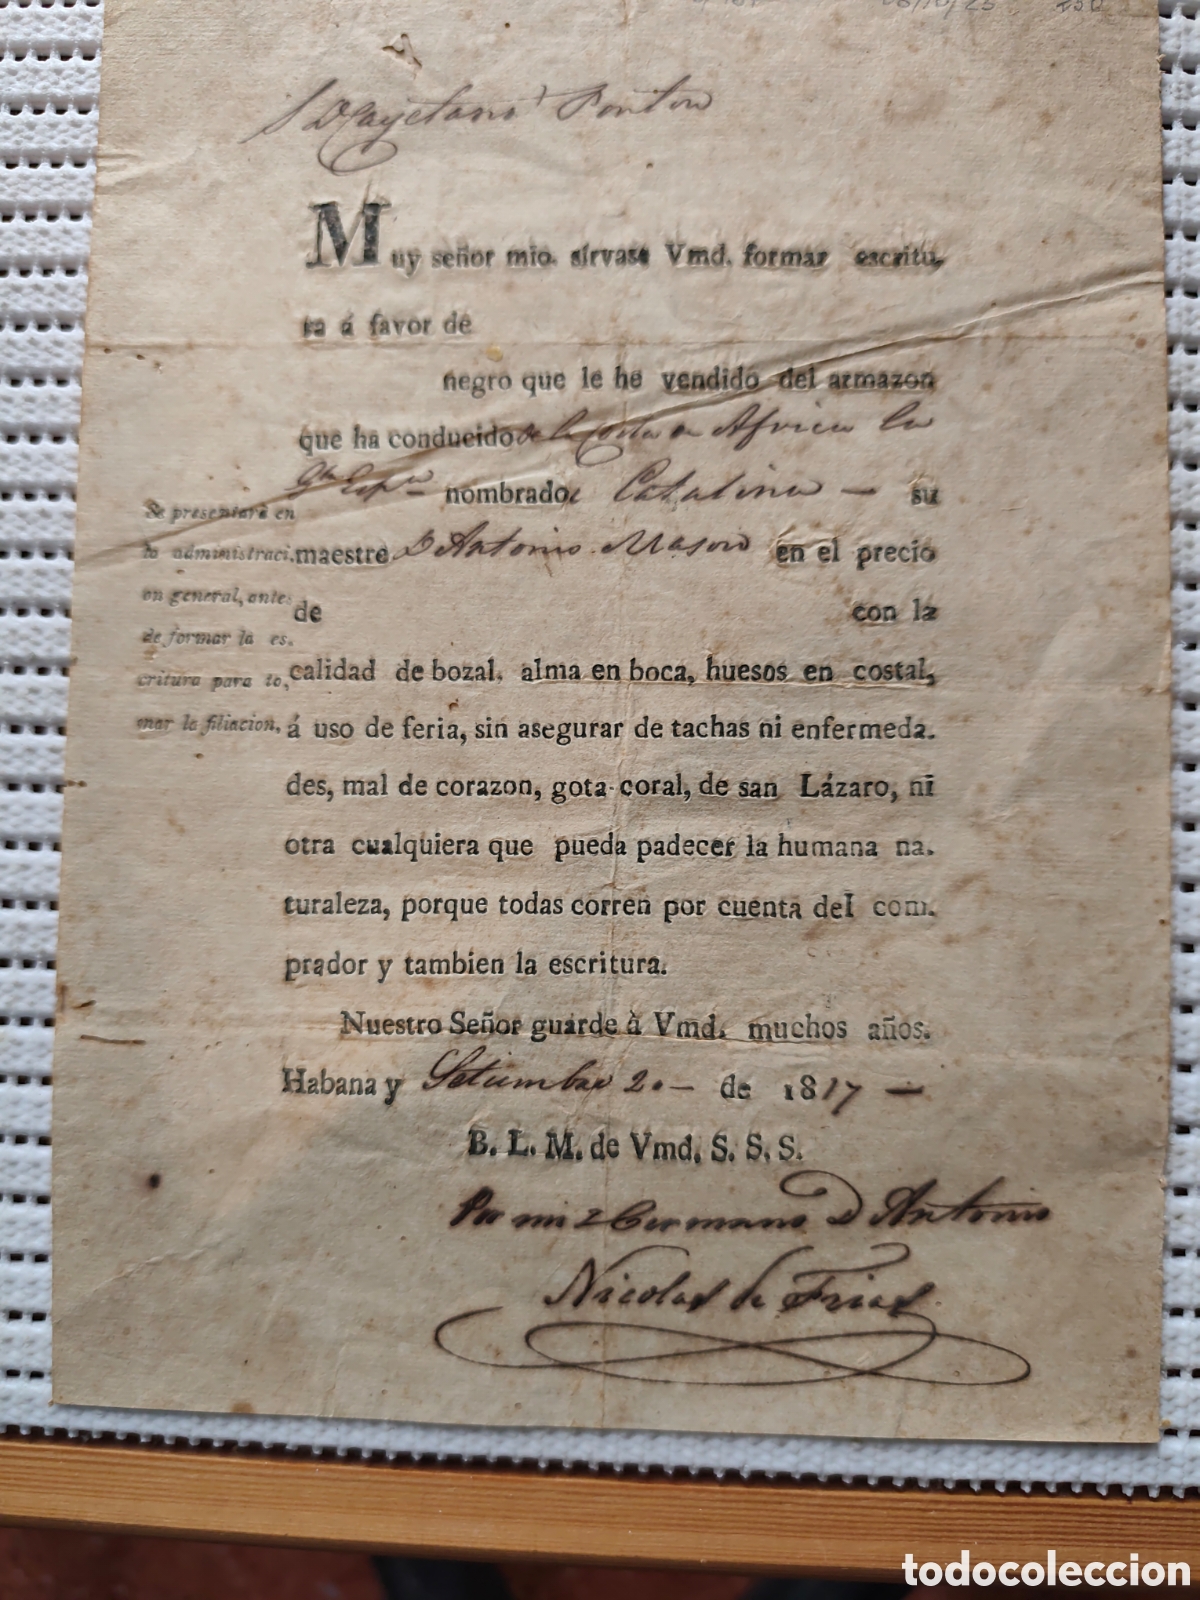 Sr Dn Cayetano Ponton
Muy señor mio. sírvase Vmd. formar escritu,
ra á favor de
negro que le he vendido del armazon
que ha conducido de la Costa de Africa la
nombrado Catalina — su
maestre Dn Antonio Mason en el precio
de con la
calidad de bozal, alma en boca, huesos en costal,
á uso de feria, sin asegurar de tachas ni enfermeda.
des, mal de corazon, gota coral, de san Lázaro, ni
otra cualquiera que pueda padecer la humana na.
turaleza, porque todas corren por cuenta del com.
prador y tambien la escritura.
Nuestro Señor guarde á Vmd. muchos años.
Habana y Setiembre 20 — de 1817 —
B. L. M. de Vmd. S. S. S.
Por mi hermano Dn Antonio
Nicolas de Frias
Se presentará en
la administraci.
on general, ante.
de formar la es.
critura para to,
mar la filiacion.
todocoleccion